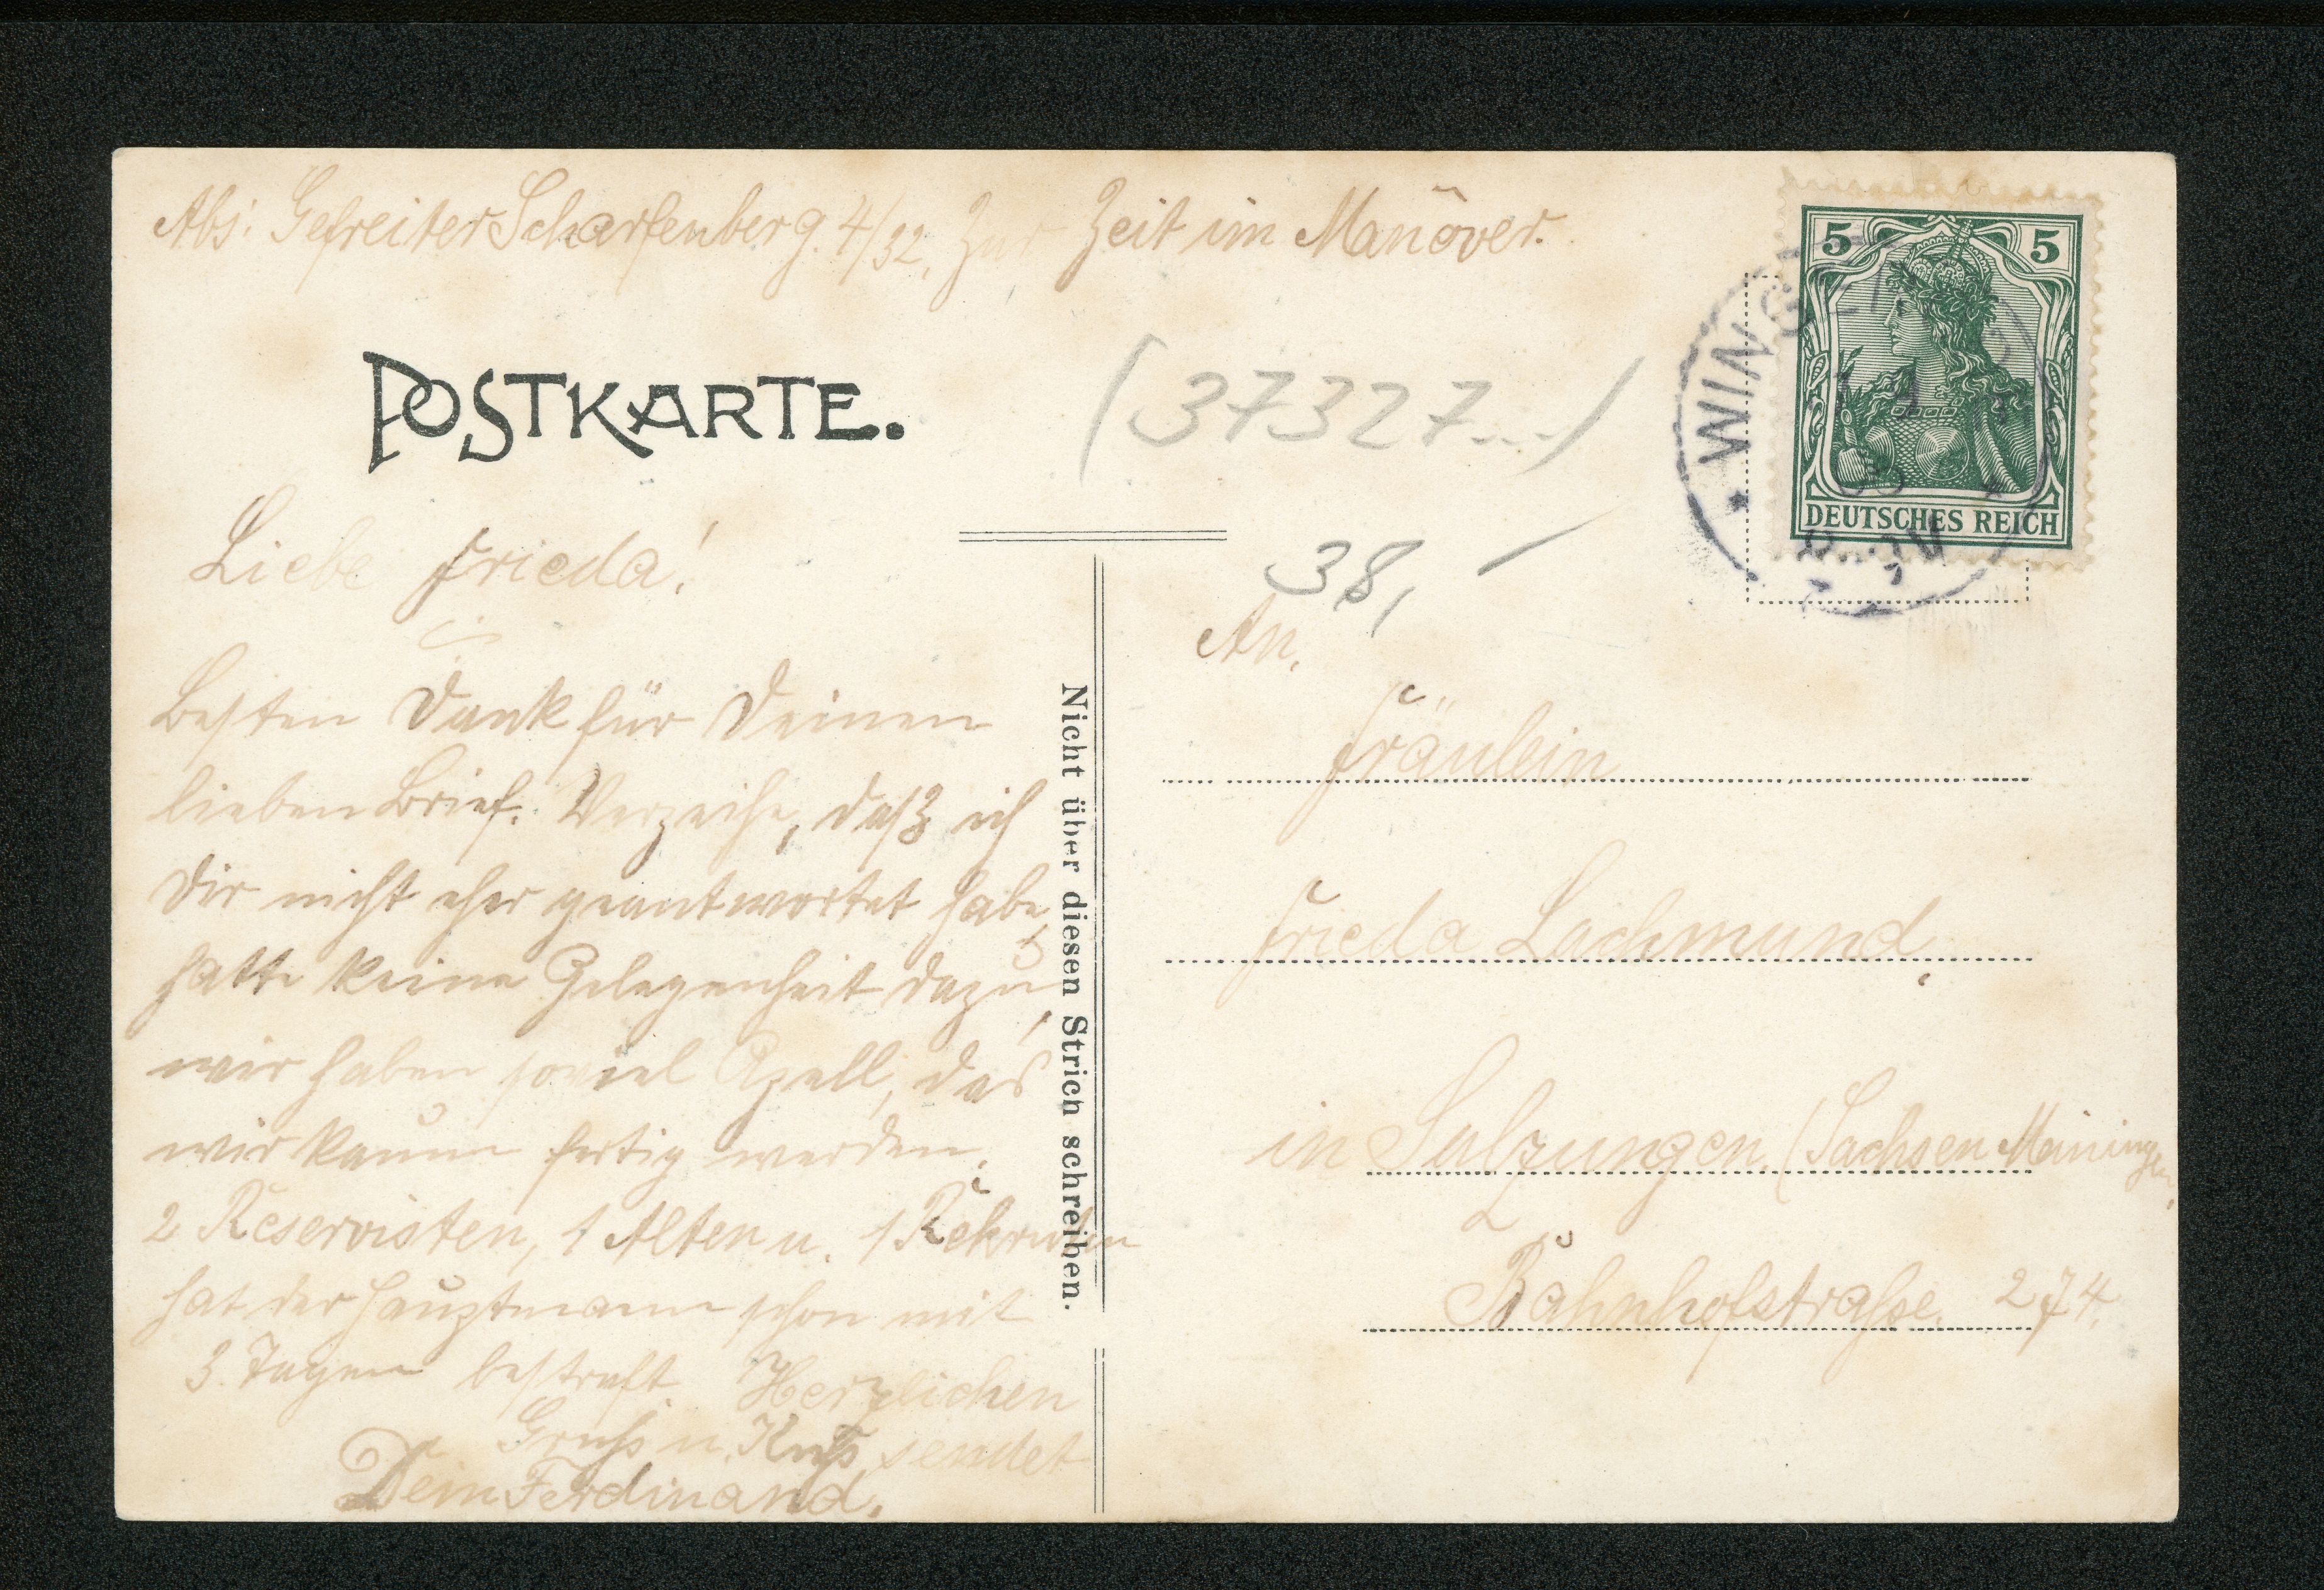 Abs: Gefreiter Scharfenberg. 4/32, Zur Zeit im Manöver.
POSTKARTE.
(37327...)
38,-
5 5
DEUTSCHES REICH
Liebe Frieda!
Besten Dank für Deinen
lieben Brief. Verzeihe, daß ich
Dir nicht eher geantwortet habe,
hatte keine Gelegenheit dazu,
wir haben soviel Apell, das
wir kaum fertig werden.
2 Reservisten, 1 Alten u. 1 Rekruten
hat der Hauptmann schon mit
3 Tagen bestraft. Herzlichen
Gruß u. Kuß sendet
Dein Ferdinand.
Nicht über diesen Strich schreiben.
An,
Fräulein
Frieda Lachmund,
in Salzungen (Sachsen Meiningen,
Bahnhofstraße. 274.